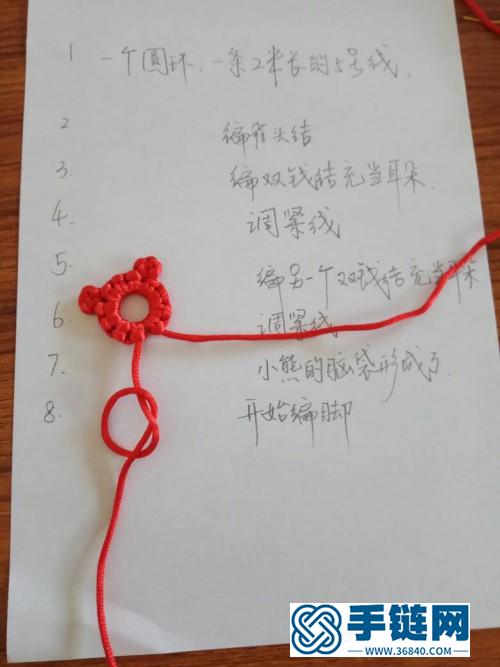 1 一个圆环、一条2米长的5号线.
2 编雀头结
3. 编双钱结充当耳朵.
4. 调紧线
5. 编另一个双钱结充当耳朵
6. 调紧线
7. 小熊的脑袋形成了.
8. 开始编脚
手链网
www.36840.com